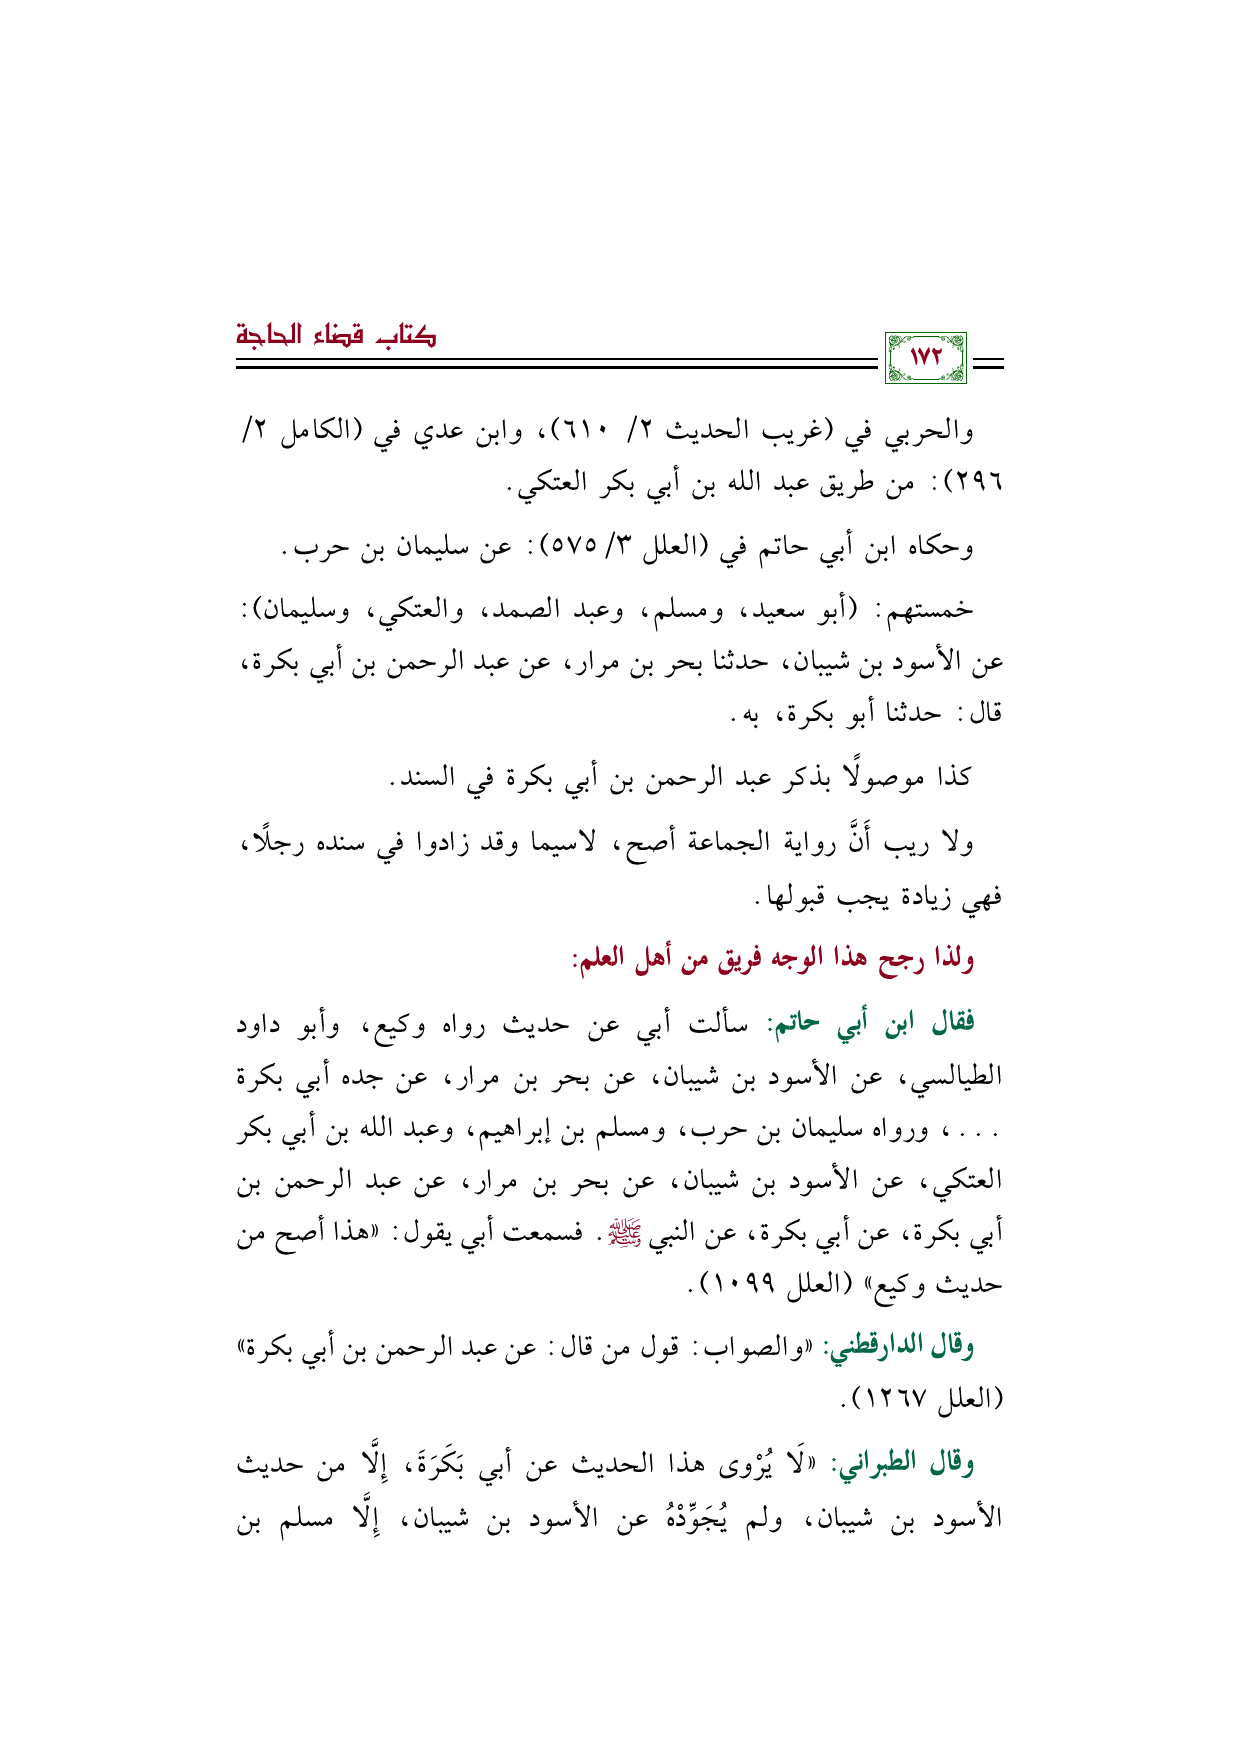 كتاب قضاء الحاجة
١٧٢
والحربي في (غريب الحديث ٢/ ٦١٠)، وابن عدي في (الكامل ٢/
٢٩٦): من طريق عبد الله بن أبي بكر العتكي.
وحكاه ابن أبي حاتم في (العلل ٣/ ٥٧٥): عن سليمان بن حرب.
خمستهم: (أبو سعيد، ومسلم، وعبد الصمد، والعتكي، وسليمان):
عن الأسود بن شيبان، حدثنا بحر بن مرار، عن عبد الرحمن بن أبي بكرة،
قال: حدثنا أبو بكرة، به.
كذا موصولًا بذكر عبد الرحمن بن أبي بكرة في السند.
ولا ريب أَنَّ رواية الجماعة أصح، لاسيما وقد زادوا في سنده رجلًا،
فهي زيادة يجب قبولها.
ولذا رجح هذا الوجه فريق من أهل العلم:
فقال ابن أبي حاتم: سألت أبي عن حديث رواه وكيع، وأبو داود
الطيالسي، عن الأسود بن شيبان، عن بحر بن مرار، عن جده أبي بكرة
...، ورواه سليمان بن حرب، ومسلم بن إبراهيم، وعبد الله بن أبي بكر
العتكي، عن الأسود بن شيبان، عن بحر بن مرار، عن عبد الرحمن بن
أبي بكرة، عن أبي بكرة، عن النبي ﷺ. فسمعت أبي يقول: «هذا أصح من
حديث وكيع» (العلل ١٠٩٩).
وقال الدارقطني: «والصواب: قول من قال: عن عبد الرحمن بن أبي بكرة»
(العلل ١٢٦٧).
وقال الطبراني: «لَا يُرْوى هذا الحديث عن أبي بَكَرَةَ، إِلَّا من حديث
الأسود بن شيبان، ولم يُجَوِّدْهُ عن الأسود بن شيبان، إِلَّا مسلم بن